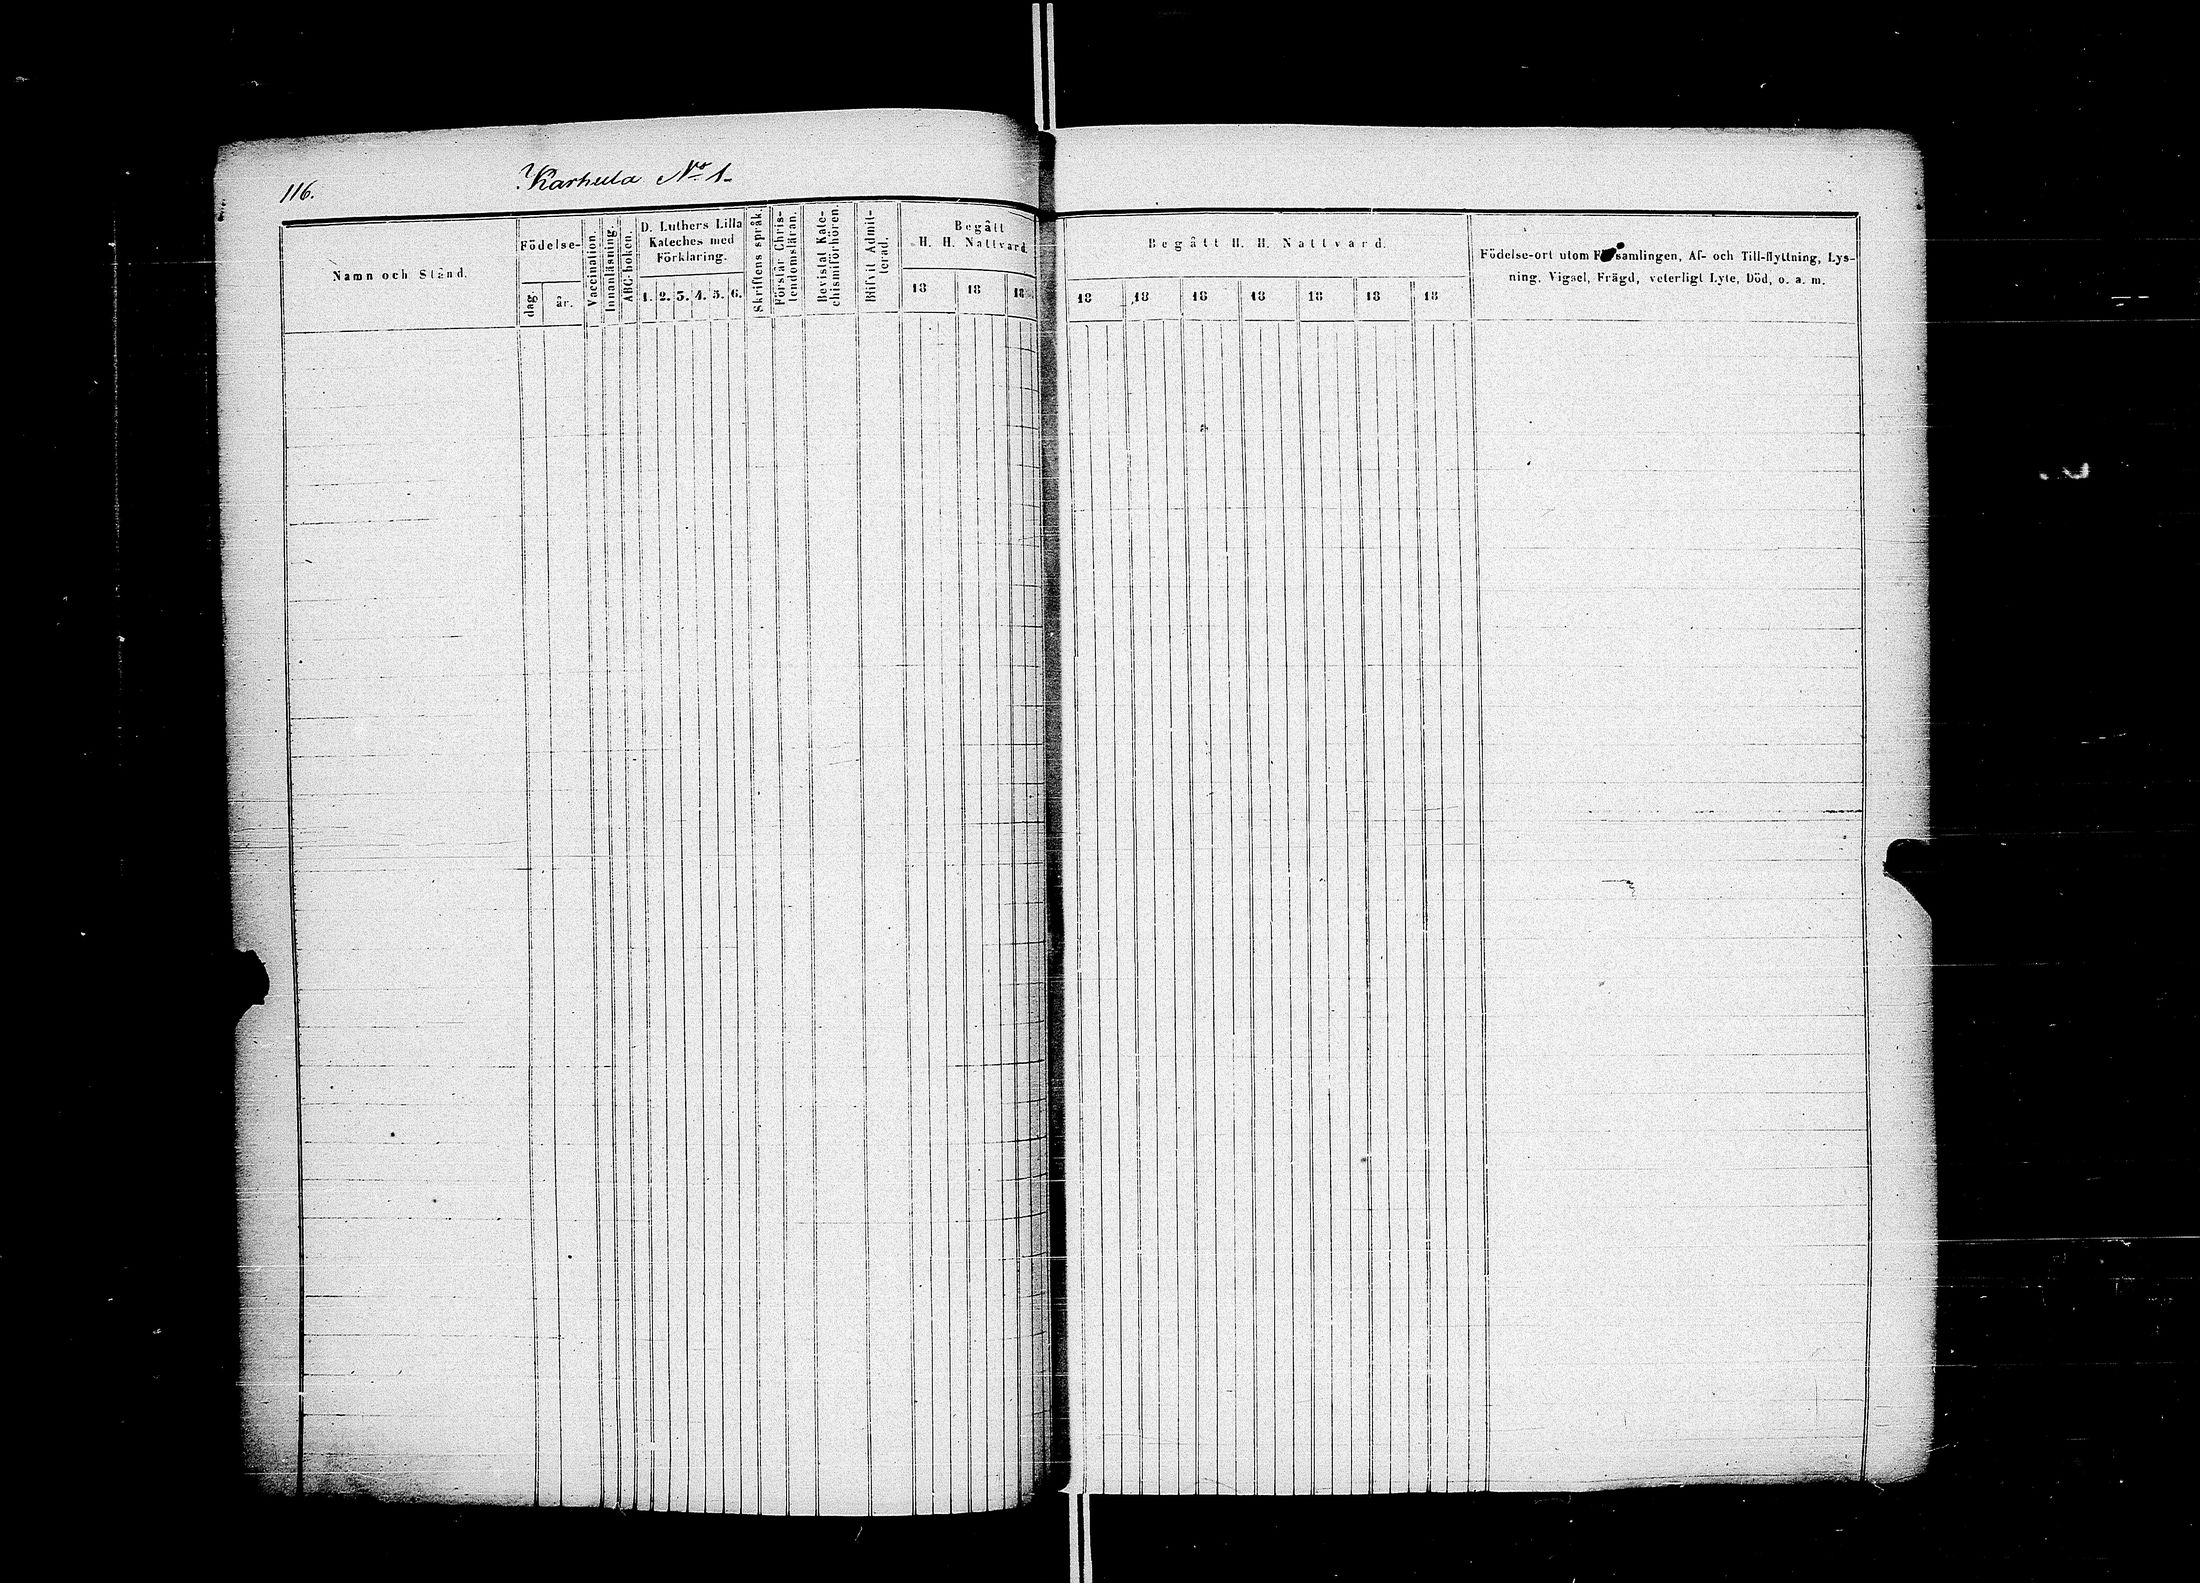 116.
Karhula No 1.
Namn och Stånd.
Födelse-
dag
år.
Vaccination.
Innanläsning.
ABC-boken.
D. Luthers Lilla
Kateches med
Förklaring.
1. 2. 3. 4. 5. 6.
Skriftens språk.
Förstår Chris-
tendomsläran.
Bevistat Kate-
chismiförhören.
Blifvit Admit-
terad.
Begått
H. H. Nattvard.
18 18 18
Begått H. H. Nattvard.
18 18 18 18 18 18 18
Födelse-ort utom Församlingen, Af- och Till-flyttning, Lys-
ning, Vigsel, Frägd, veterligt Lyte, Död, o. a. m.